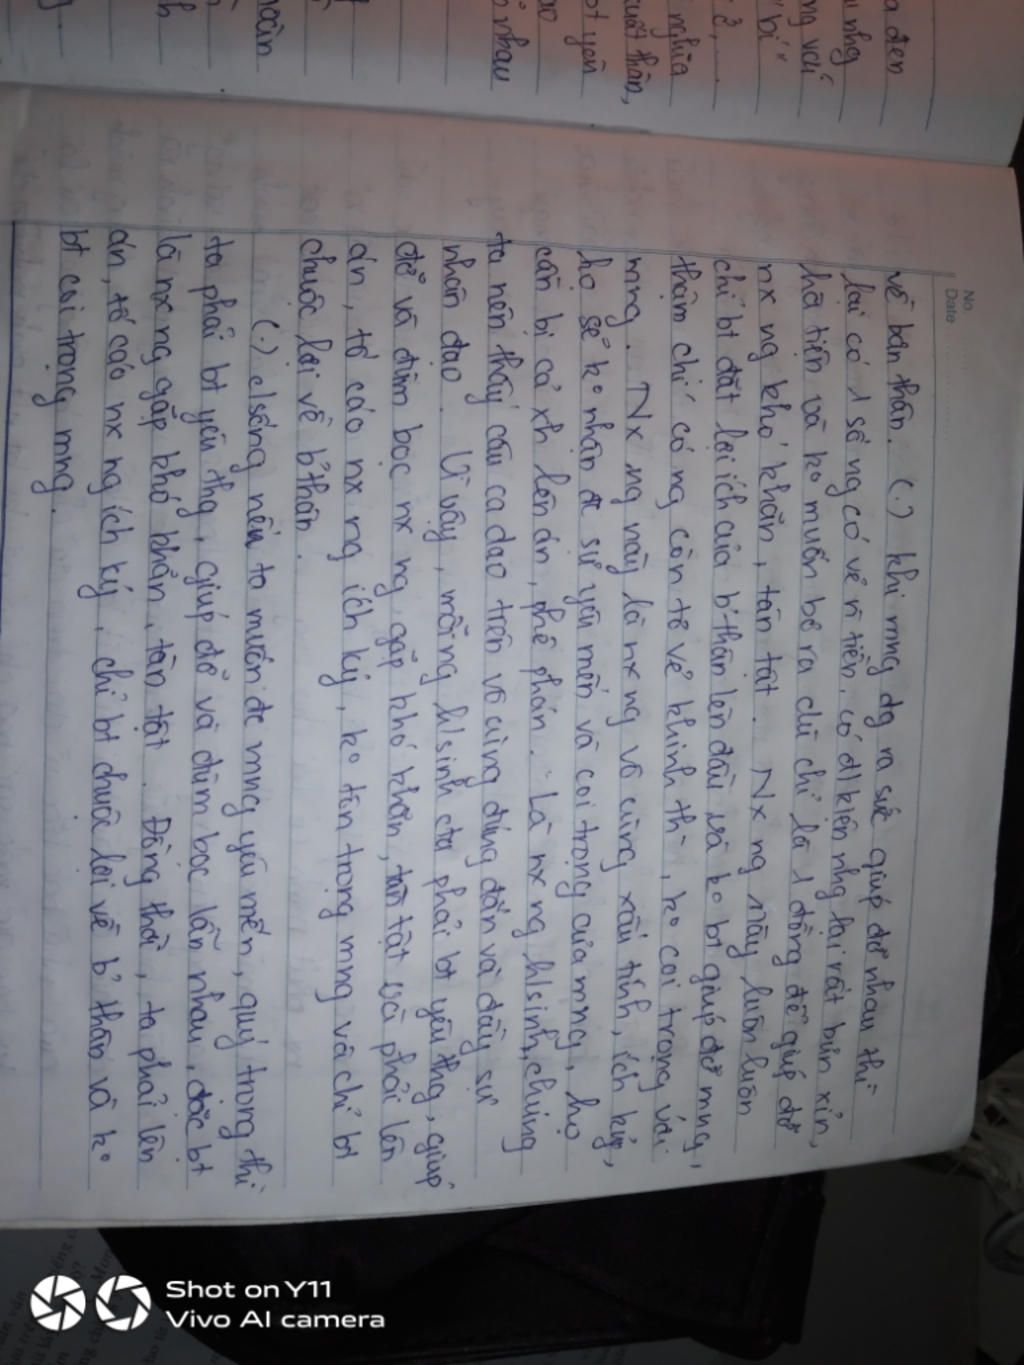 No.
Date
về bản thân. (.) khi mng đg ra sức giúp đỡ nhau thì
lại có 1 số ng có vẻ n` tiền, có đ/kiện nhg lại rất bủn xỉn,
hà tiện và ko muốn bỏ ra dù chỉ là 1 đồng để giúp đỡ
nx ng khó khăn, tàn tật. Nx ng này luôn luôn
chỉ bt đặt lợi ích của b' thân lên đầu và ko bt giúp đỡ mng,
thậm chí có ng còn tỏ vẻ khinh th`, ko coi trọng với
mng. Nx ng này là nx ng vô cùng xấu tính, ích kỷ,
họ sẽ ko nhận đc sự yêu mến và coi trọng của mng, họ
cần bị cả xh lên án, phê phán. Là nx ng h/sinh, chúng
ta nên thấy câu ca dao trên vô cùng đúng đắn và đầy sự
nhân đạo. Vì vậy, mỗi ng h/sinh cta phải bt yêu thg, giúp
đỡ và đùm bọc nx ng gặp khó khăn, tàn tật và phải lên
án, tố cáo nx ng ích kỷ, ko tôn trọng mng và chỉ bt
chuộc lợi về b' thân.
(.) c/sống nếu ta muốn đc mng yêu mến, quý trọng thì
ta phải bt yêu thg, giúp đỡ và đùm bọc lẫn nhau, đặc bt
là nx ng gặp khó khăn, tàn tật. Đồng thời, ta phải lên
án, tố cáo nx ng ích kỷ, chỉ bt chuộc lợi về b' thân và ko
bt coi trọng mng.
a đen
nhg
ng với
bí"
nghĩa
xuất thân,
bt yên
nhau
đoàn
Shot on Y11
Vivo AI camera